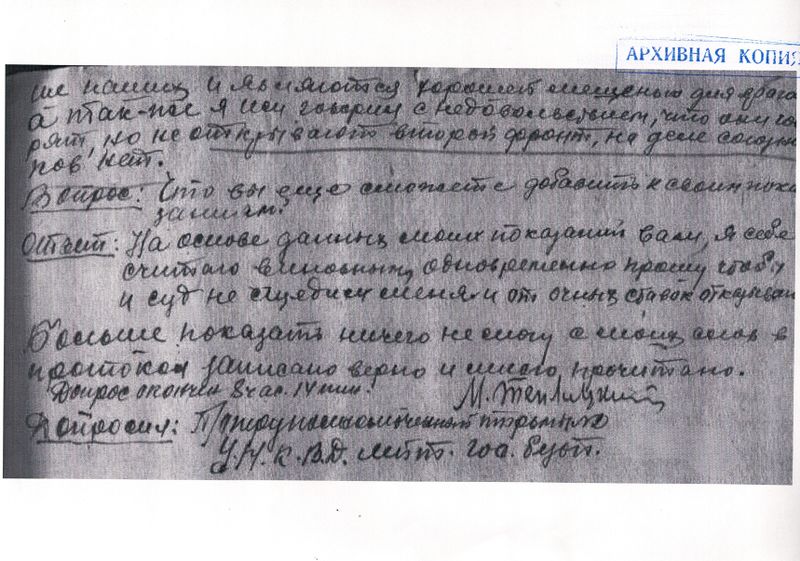 АРХИВНАЯ КОПИЯ
ше наших и являются хорошей мишенью для врага
а так-же я им говорил с недовольствием, что они гово
рят, но не открывают второй фронт, на деле союзни
ков нет.
Вопрос: Что вы еще сможете добавить к своим пока
заниям.
Ответ: На основе данных моих показаний вам, я себя
считаю виновным, одновременно прошу чтобы
и суд не судил меня и от очных ставок отказываюсь
Больше показать ничего не могу с моих слов в
протокол записано верно и мною прочитано.
Допрос окончен 8 час. 14 мин.
М. Теплицкий
Допросил:
У.Н.К.В.Д. лейт. гос. безоп.